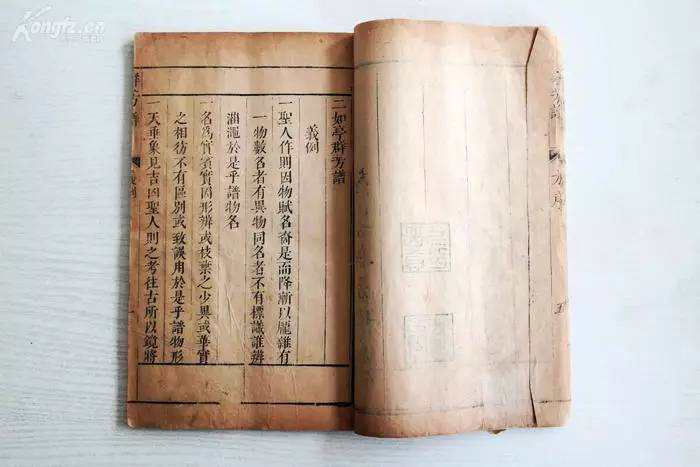 Kongfz.cn
二如亭群芳譜
義例
一聖人作則因物賦名裔是而降漸以龐雜有
一物數名者有異物同名者不有標識誰辨
淄澠於是乎譜物名
一名為實賓實因形辨或枝葉之少異或華實
之相彷不有區別或致誤用於是乎譜物形
一天垂象見吉凶聖人則之考往古所以鏡將
群芳譜
義例
方序
五